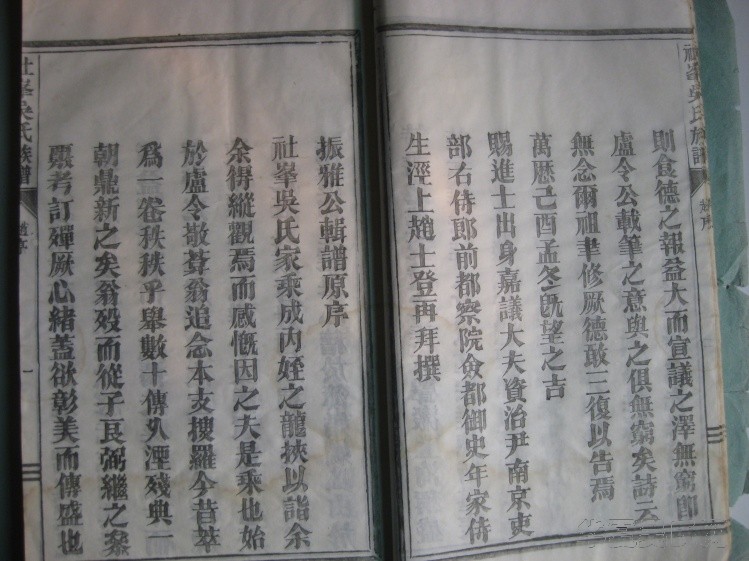 祉峯吳氏族譜
趙序
則食德之報益大而宣議之澤無窮即
盧令公載筆之意與之俱無窮矣詩云
無念爾祖聿修厥德敢三復以告焉
萬歷己酉孟冬既望之吉
賜進士出身嘉議大夫資治尹南京吏
部右侍郎前都察院僉都御史年家侍
生涇上趙士登再拜撰
振雅公輯譜原序
社峯吳氏家乘成內姪之龍挾以詣余
余得縱觀焉而感慨因之夫是乘也始
於盧令敬葊翁追念本支搜羅今昔萃
為一卷秩秩乎舉數十傳久湮殘典一
朝鼎新之矣翁歿而從子良弼繼之叅
稽考訂殫厥心緒蓋欲彰美而傳盛也
社峯吳氏族譜
一